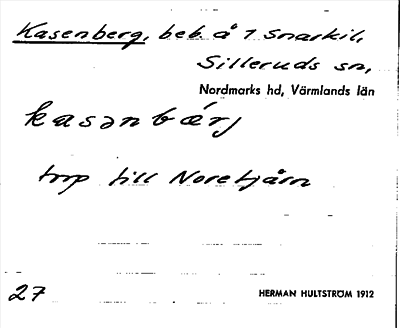 Kasenberg, beb. å 1 Snarkil,
Silleruds sn,
Nordmarks hd, Värmlands län
kasənbærj
torp till Noretjärn
27
HERMAN HULTSTRÖM 1912